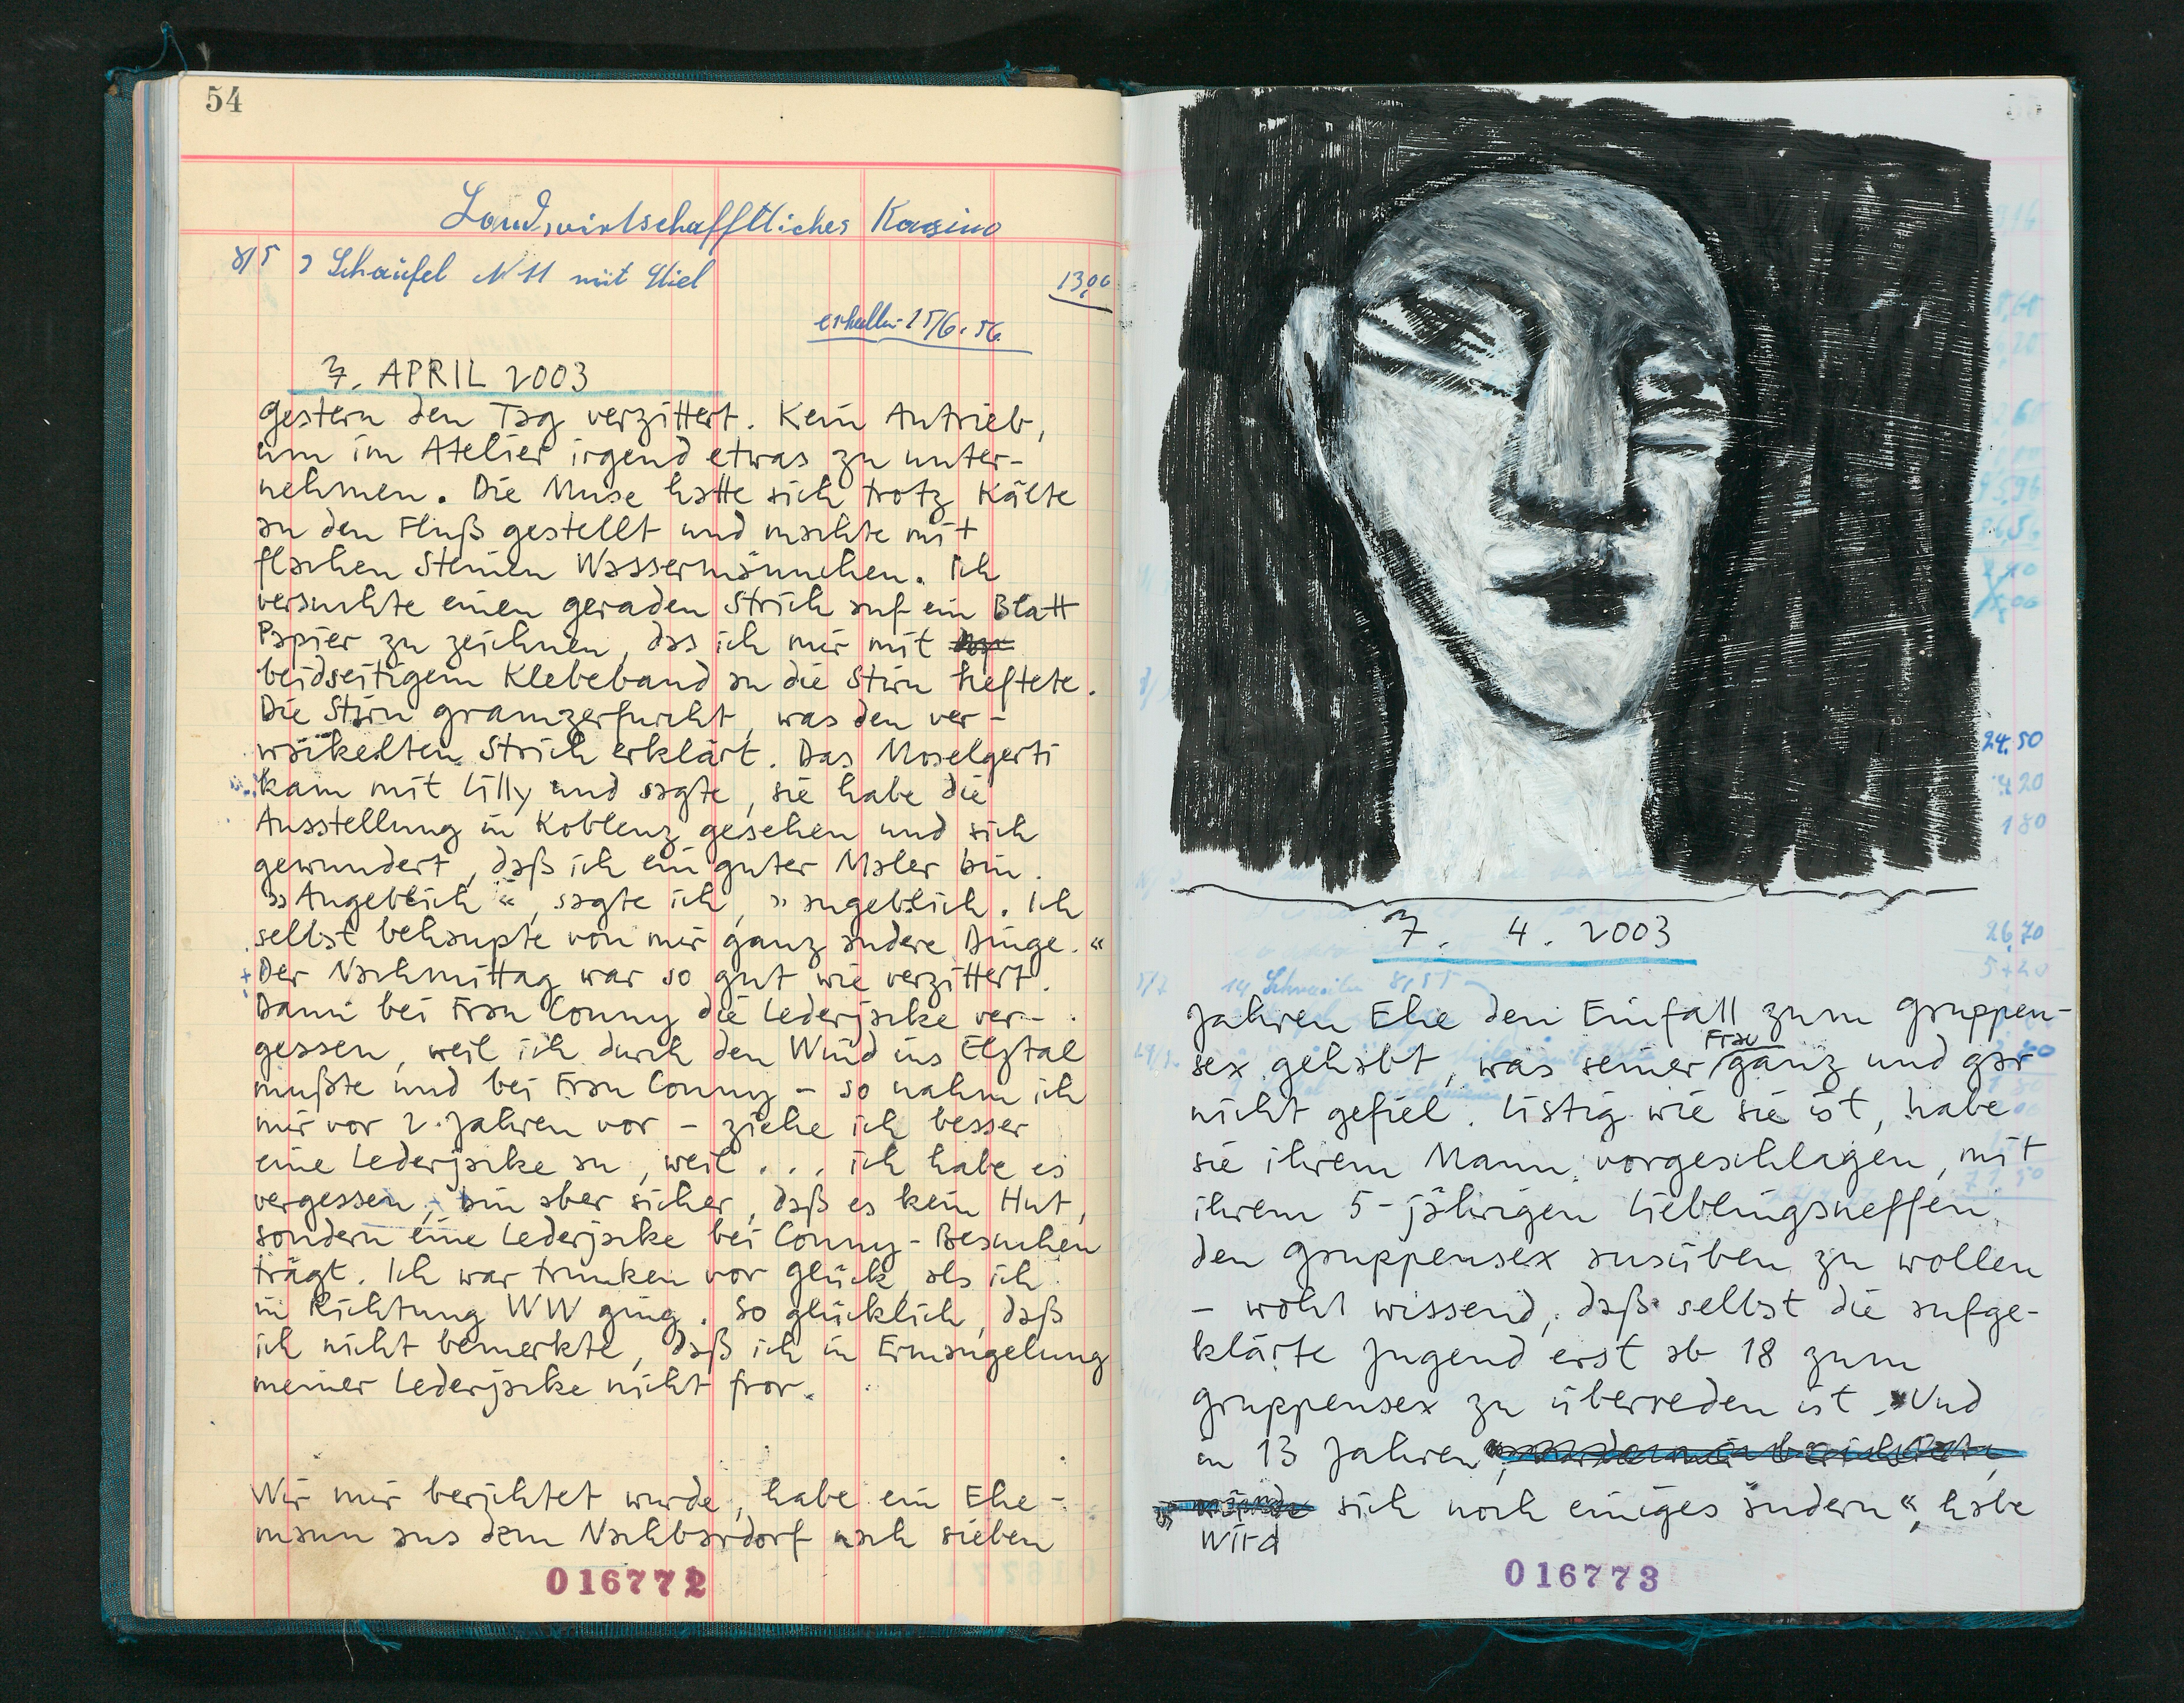 54
Landwirtschafftliches Kasino
8/5 2 Schaufel N 11 mit Stiel 13,00
erhalten 15/6.56.
7. APRIL 2003
gestern den Tag verzittert. Kein Antrieb,
um im Atelier irgend etwas zu unter-
nehmen. Die Muse hatte sich trotz Kälte
an den Fluß gestellt und machte mit
flachen Steinen Wassermännchen. Ich
versuchte einen geraden Strich auf ein Blatt
Papier zu zeichnen, das ich mir mit
beidseitigem Klebeband an die Stirn heftete.
Die Stirn gramzerfurcht, was den ver-
wackelten Strich erklärt. Das Moselgerti
kam mit Lilly und sagte, sie habe die
Ausstellung in Koblenz gesehen und sich
gewundert, daß ich ein guter Maler bin.
»Angeblich«, sagte ich, »angeblich. Ich
selbst behaupte von mir ganz andere Dinge.«
Der Nachmittag war so gut wie verzittert.
Dann bei Frau Conny die Lederjacke ver-
gessen, weil ich durch den Wind ins Elztal
mußte und bei Frau Conny – so nahm ich
mir vor 2 Jahren vor – ziehe ich besser
eine Lederjacke an, weil ... ich habe es
vergessen, bin aber sicher, daß es kein Hut,
sondern eine Lederjacke bei Conny-Besuchen
trägt. Ich war trunken vor Glück, als ich
in Richtung WW ging. So glücklich, daß
ich nicht bemerkte, daß ich in Ermangelung
meiner Lederjacke nicht fror.
Wir mir berichtet wurde, habe ein Ehe-
mann aus dem Nachbardorf nach sieben
016772
24,50
4,20
180
7. 4. 2003
26,70
Jahren Ehe den Einfall zum Gruppen-
sex gehabt, was seiner Frau ganz und gar
nicht gefiel. Listig wie sie ist, habe
sie ihrem Mann vorgeschlagen, mit
ihrem 5-jährigen Lieblingsneffen
den Gruppensex ausüben zu wollen
– wohl wissend, daß selbst die aufge-
klärte Jugend erst ab 18 zum
Gruppensex zu überreden ist. »Und
in 13 Jahren
wird sich noch einiges ändern«, habe
016773